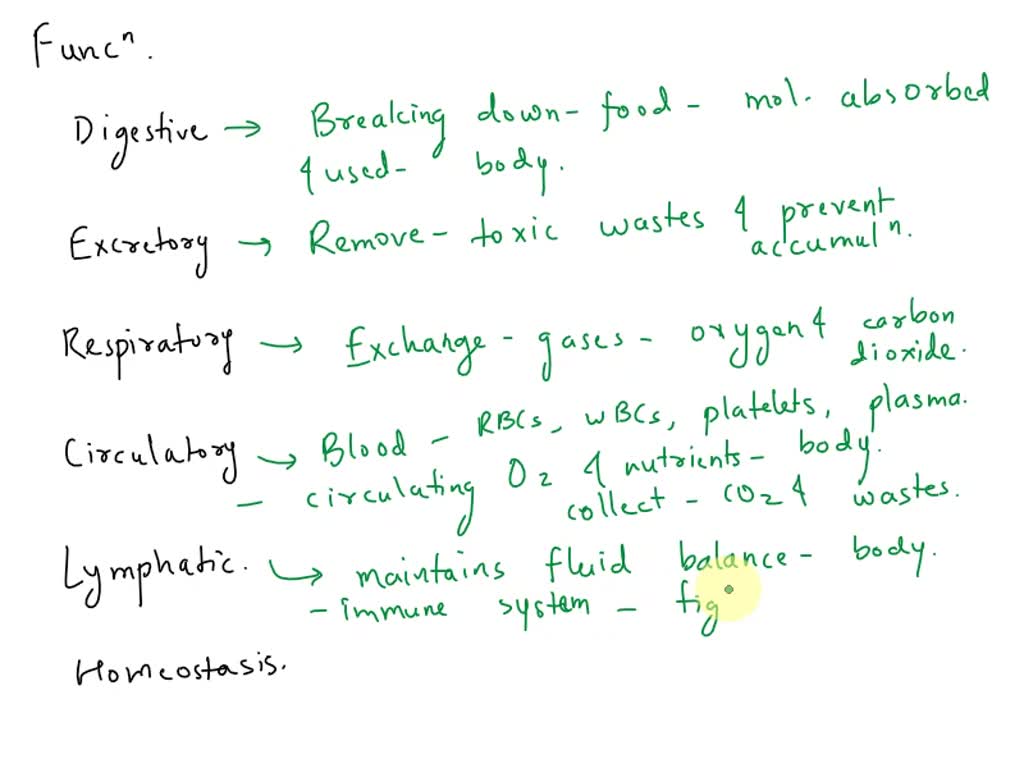 Funcⁿ.
Digestive → Breaking down - food - mol. absorbed
& used - body.
Excretory → Remove - toxic wastes & prevent
accumulⁿ.
Respiratory → Exchange - gases - oxygen & carbon
dioxide.
Circulatory → Blood - RBCs, WBCs, platelets, plasma.
- circulating O2 & nutrients - body.
collect - CO2 & wastes.
Lymphatic. → maintains fluid balance - body.
- immune system - fig
Homeostasis.